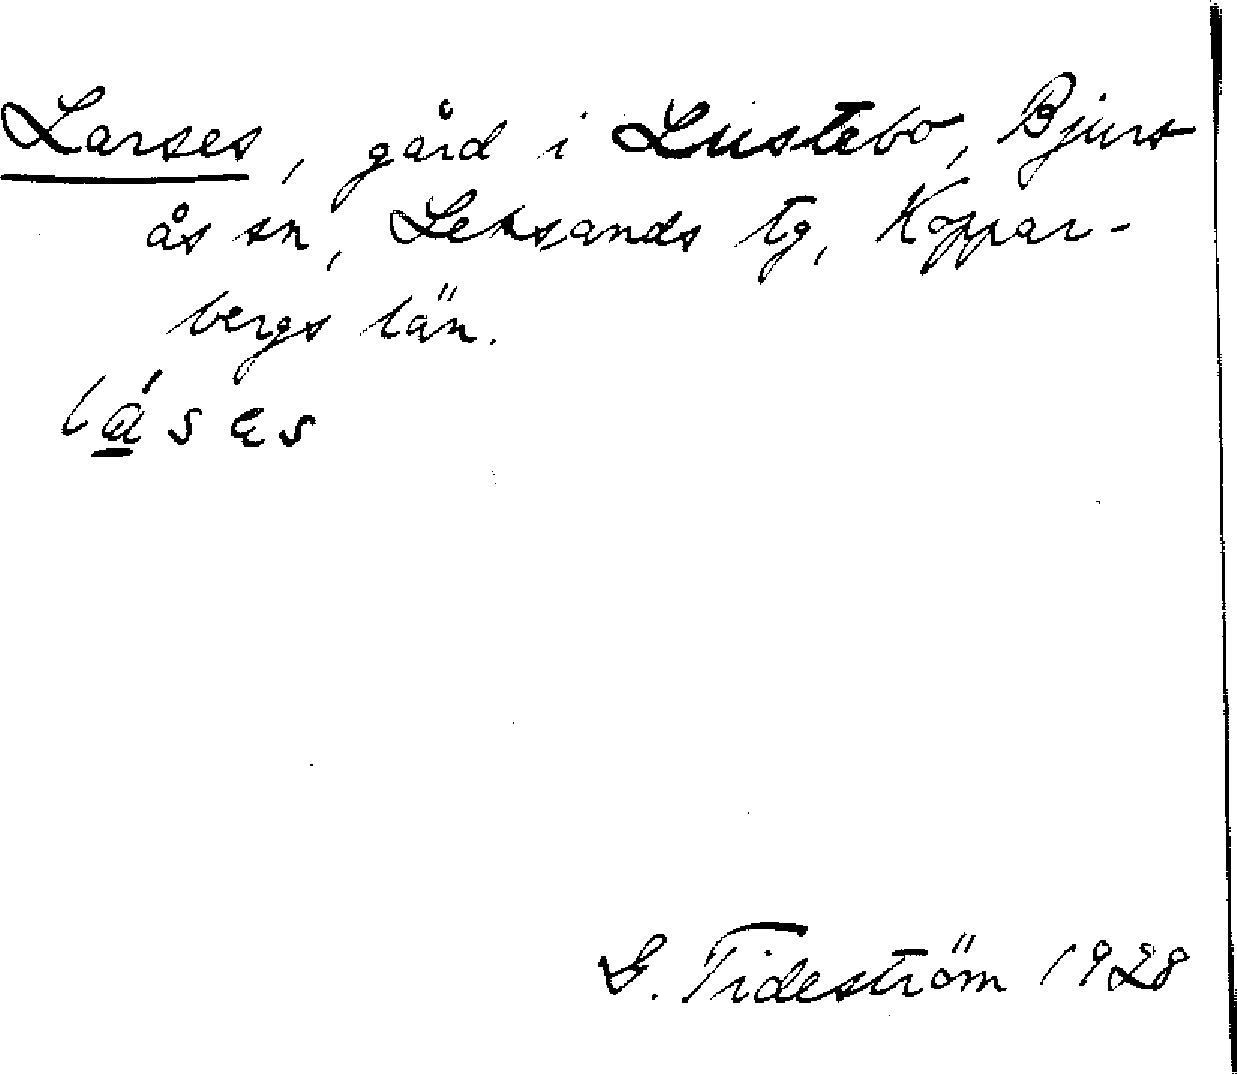 Larses, gård i Lustebo, Bjurs
ås sn, Leksands tg, Koppar-
bergs län.
lá̱ses
G. Tideström 1928